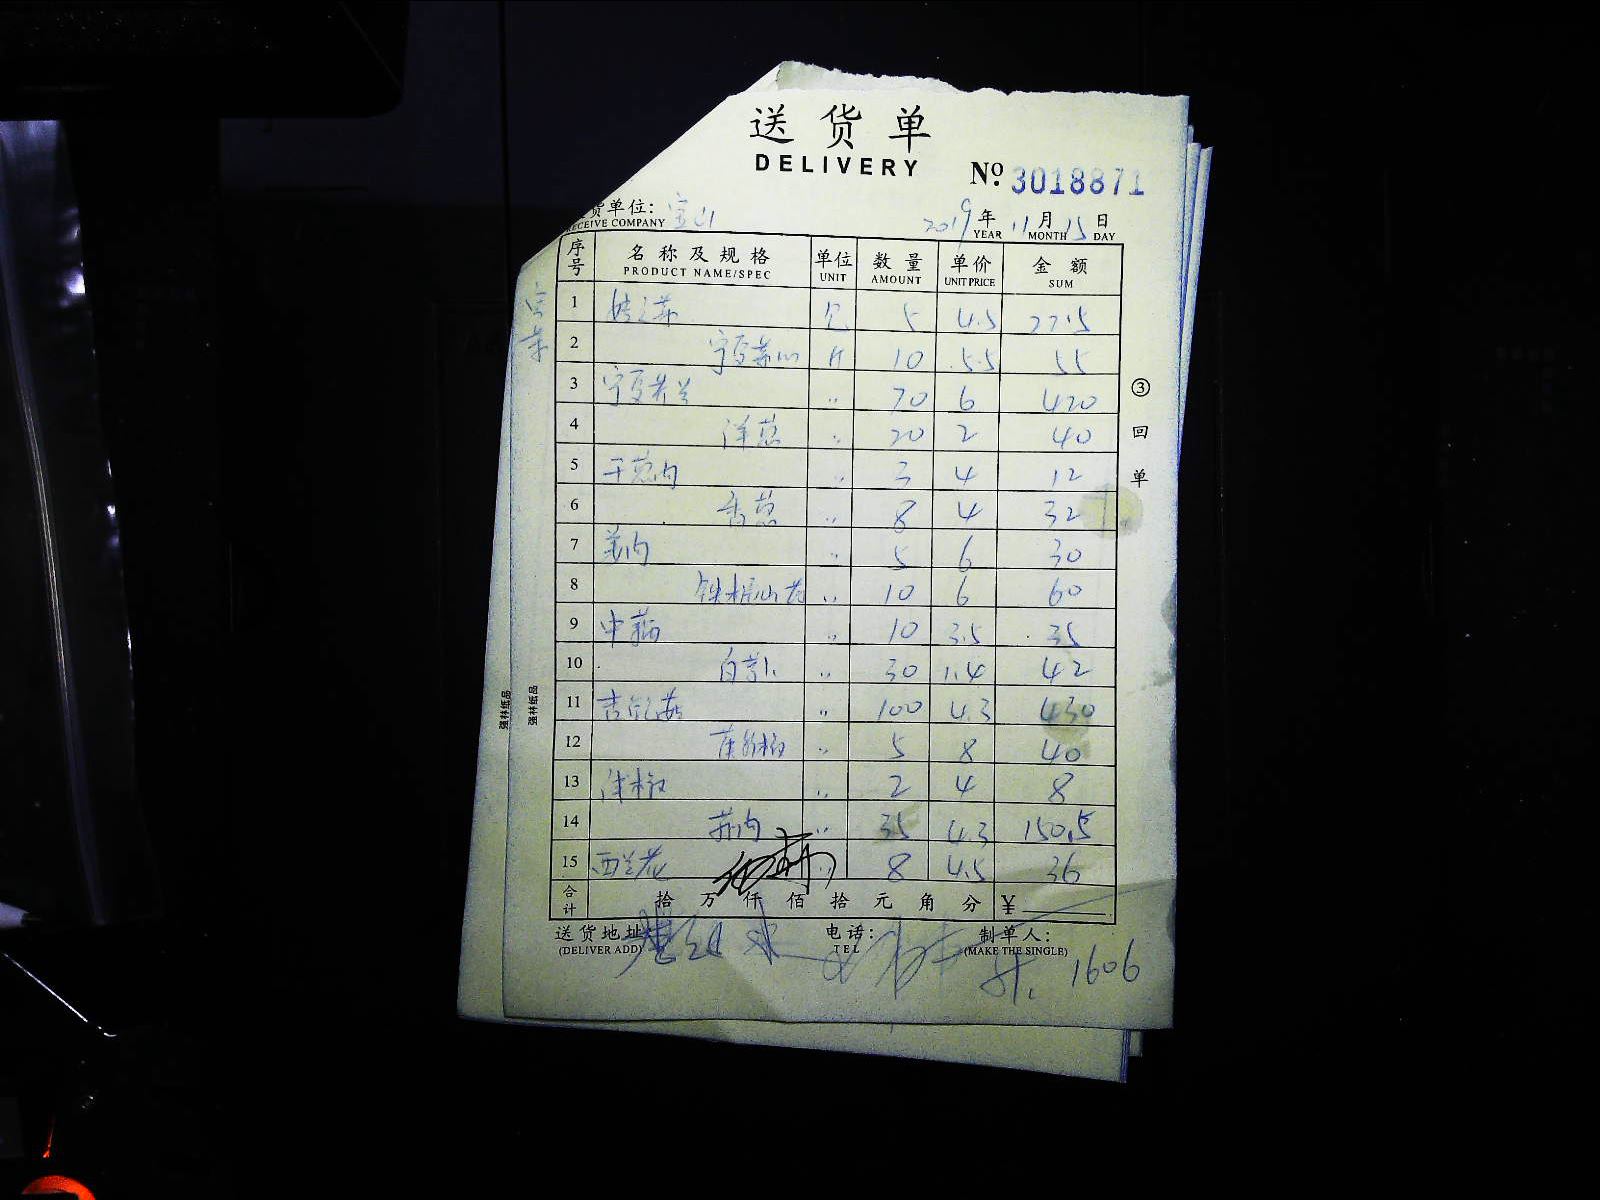 送货单
DELIVERY
No. 3018871
货单位: 宝山
RECEIVE COMPANY
2019年 11月 15日
YEAR MONTH DAY
序号 名称及规格 单位 数量 单价 金额
PRODUCT NAME/SPEC UNIT AMOUNT UNIT PRICE SUM
1 5 4.5 22.5
2 宁夏菜心 斤 10 5.5 55
3 宁夏芥兰 〃 70 6 420
4 洋葱 〃 20 2 40
5 干葱肉 〃 3 4 12
6 香葱 〃 8 4 32
7 姜肉 〃 5 6 30
8 铁棍山药 〃 10 6 60
9 中芹 〃 10 3.5 35
10 白萝卜 〃 30 1.4 42
11 〃 100 4.3 430
12 〃 5 8 40
13 〃 2 4 8
14 〃 35 4.3 150.5
15 西兰花 〃 8 4.5 36
合计 拾 万 仟 佰 拾 元 角 分 ¥
送货地址: 电话: 制单人:
(DELIVER ADD) TEL (MAKE THE SINGLE)
1606
③回单
强林纸品
强林纸品